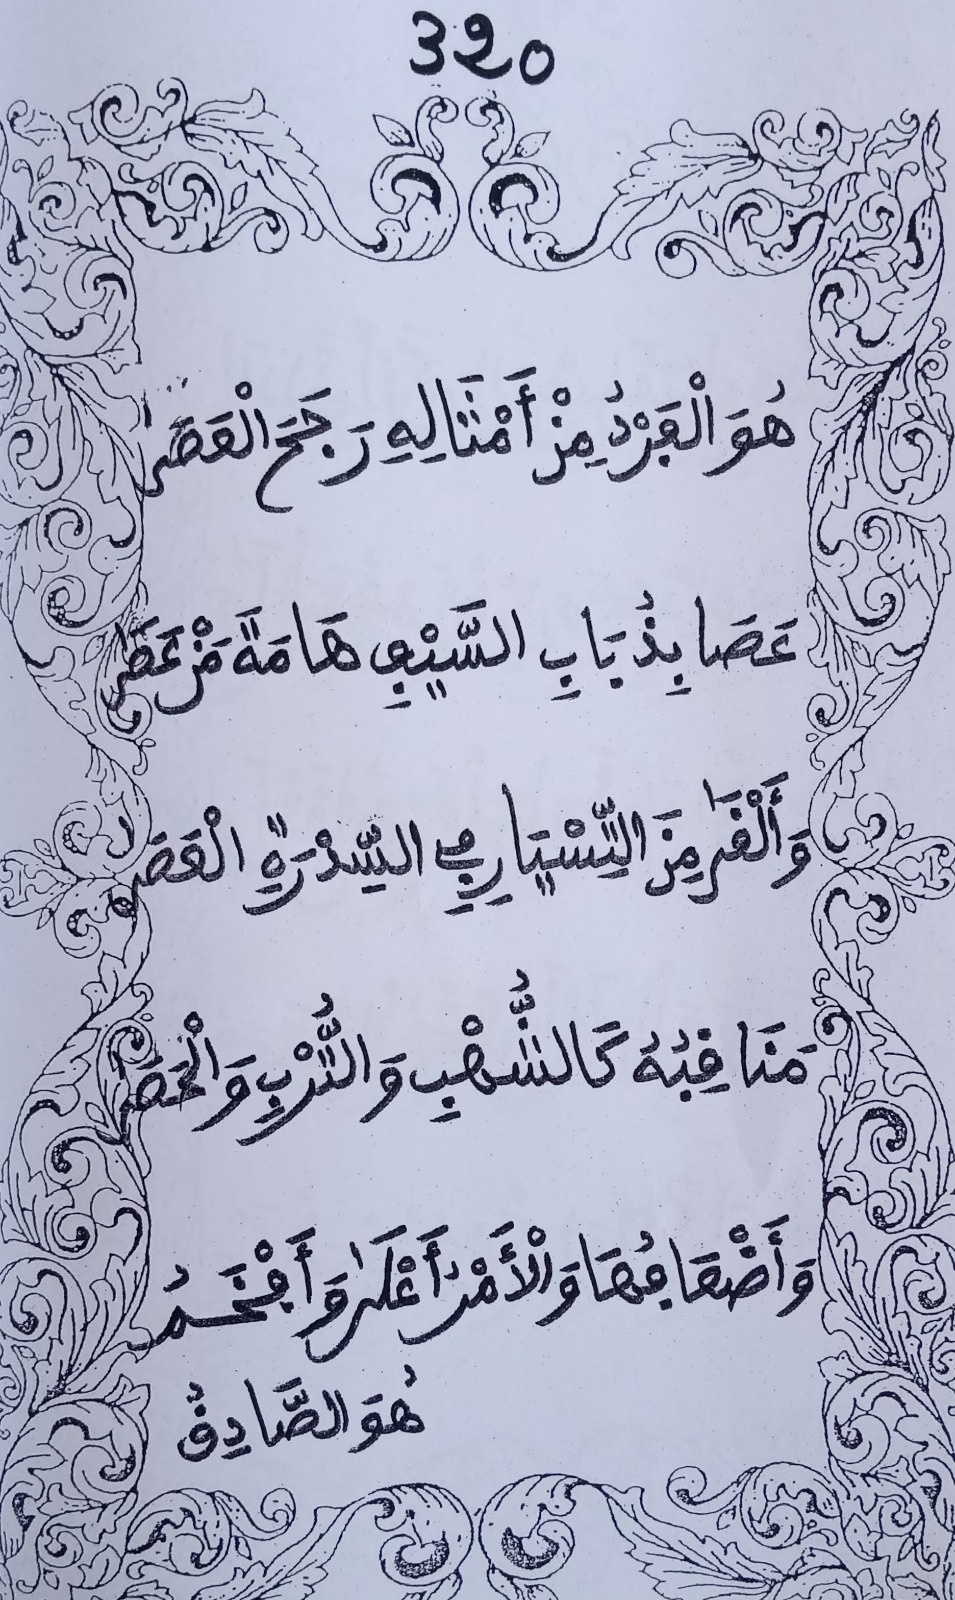 320
هُوَ الْفَرْدُ مِنْ أَمْثَالِهِ رَجَحَ الْعَصَى
عَصَا بِذُبَابِ السَّيْفِ هَامَةَ مَنْ عَصَى
وَأَلْقَى مِنَ التِّسْيَارِ فِي السِّدْرَةِ الْعَصَى
مَنَاقِبُهُ كَالشُّهْبِ وَالتُّرْبِ وَالْحَصَى
وَأَضْعَافُهَا وَالْأَمْرُ أَعْلَى وَأَفْخَمُ
هُوَ الصَّادِقُ